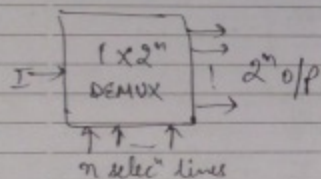 1 x 2ⁿ
I → DEMUX ! 2ⁿ O/P
n selecⁿ lines